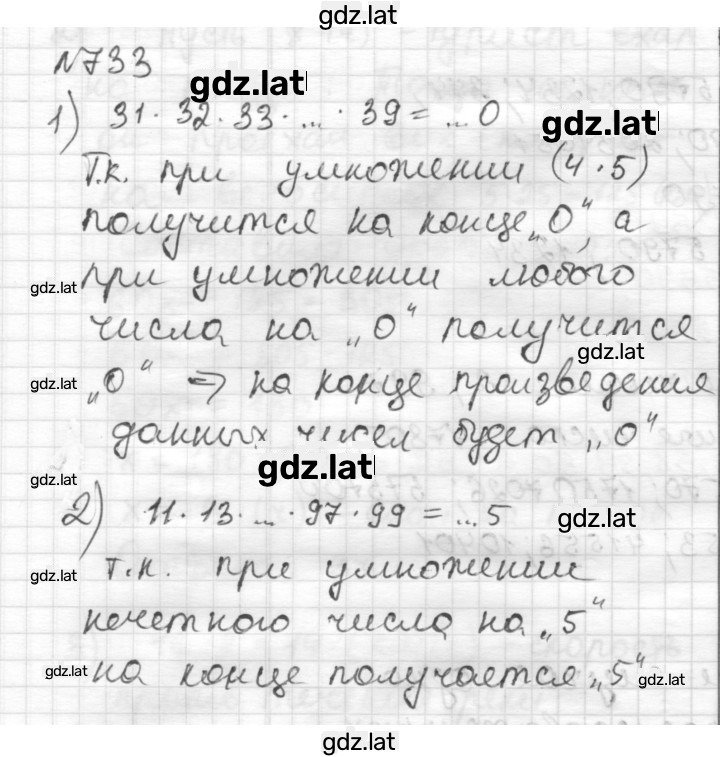 gdz.lat
№733
gdz.lat
1) 31·32·33·...·39=...0
gdz.lat
Т.к. при умножении (4·5)
получится на конце „0“, а
gdz.lat
при умножении любого
числа на „0“ получится
gdz.lat
gdz.lat
„0“ ⇒ на конце произведения
данных чисел будет „0“
gdz.lat
gdz.lat
2) 11·13·...·97·99=...5
gdz.lat
gdz.lat
т.к. при умножении
нечетного числа на „5“
gdz.lat
на конце получается „5“
gdz.lat
gdz.lat